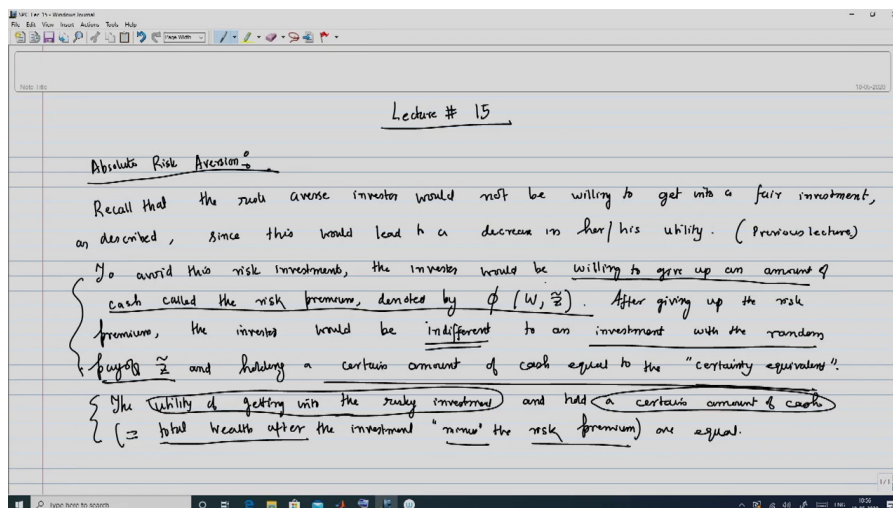 SPC Lec 15 - Windows Journal
File Edit View Insert Actions Tools Help
Page Width
Note Title
18-05-2020
Lecture # 15
Absolute Risk Aversion:
Recall that the risk averse investor would not be willing to get into a fair investment,
as described, since this would lead to a decrease in her/his utility. (Previous lecture)
To avoid this risk investment, the investor would be willing to give up an amount of
cash called the risk premium, denoted by ϕ (W, z̃). After giving up the risk
premium, the investor would be indifferent to an investment with the random
payoff z̃ and holding a certain amount of cash equal to the "certainty equivalent".
The utility of getting into the risky investment and hold a certain amount of cash
(= total wealth after the investment "minus" the risk premium) are equal.
1/1
Type here to search
ENG
10:56